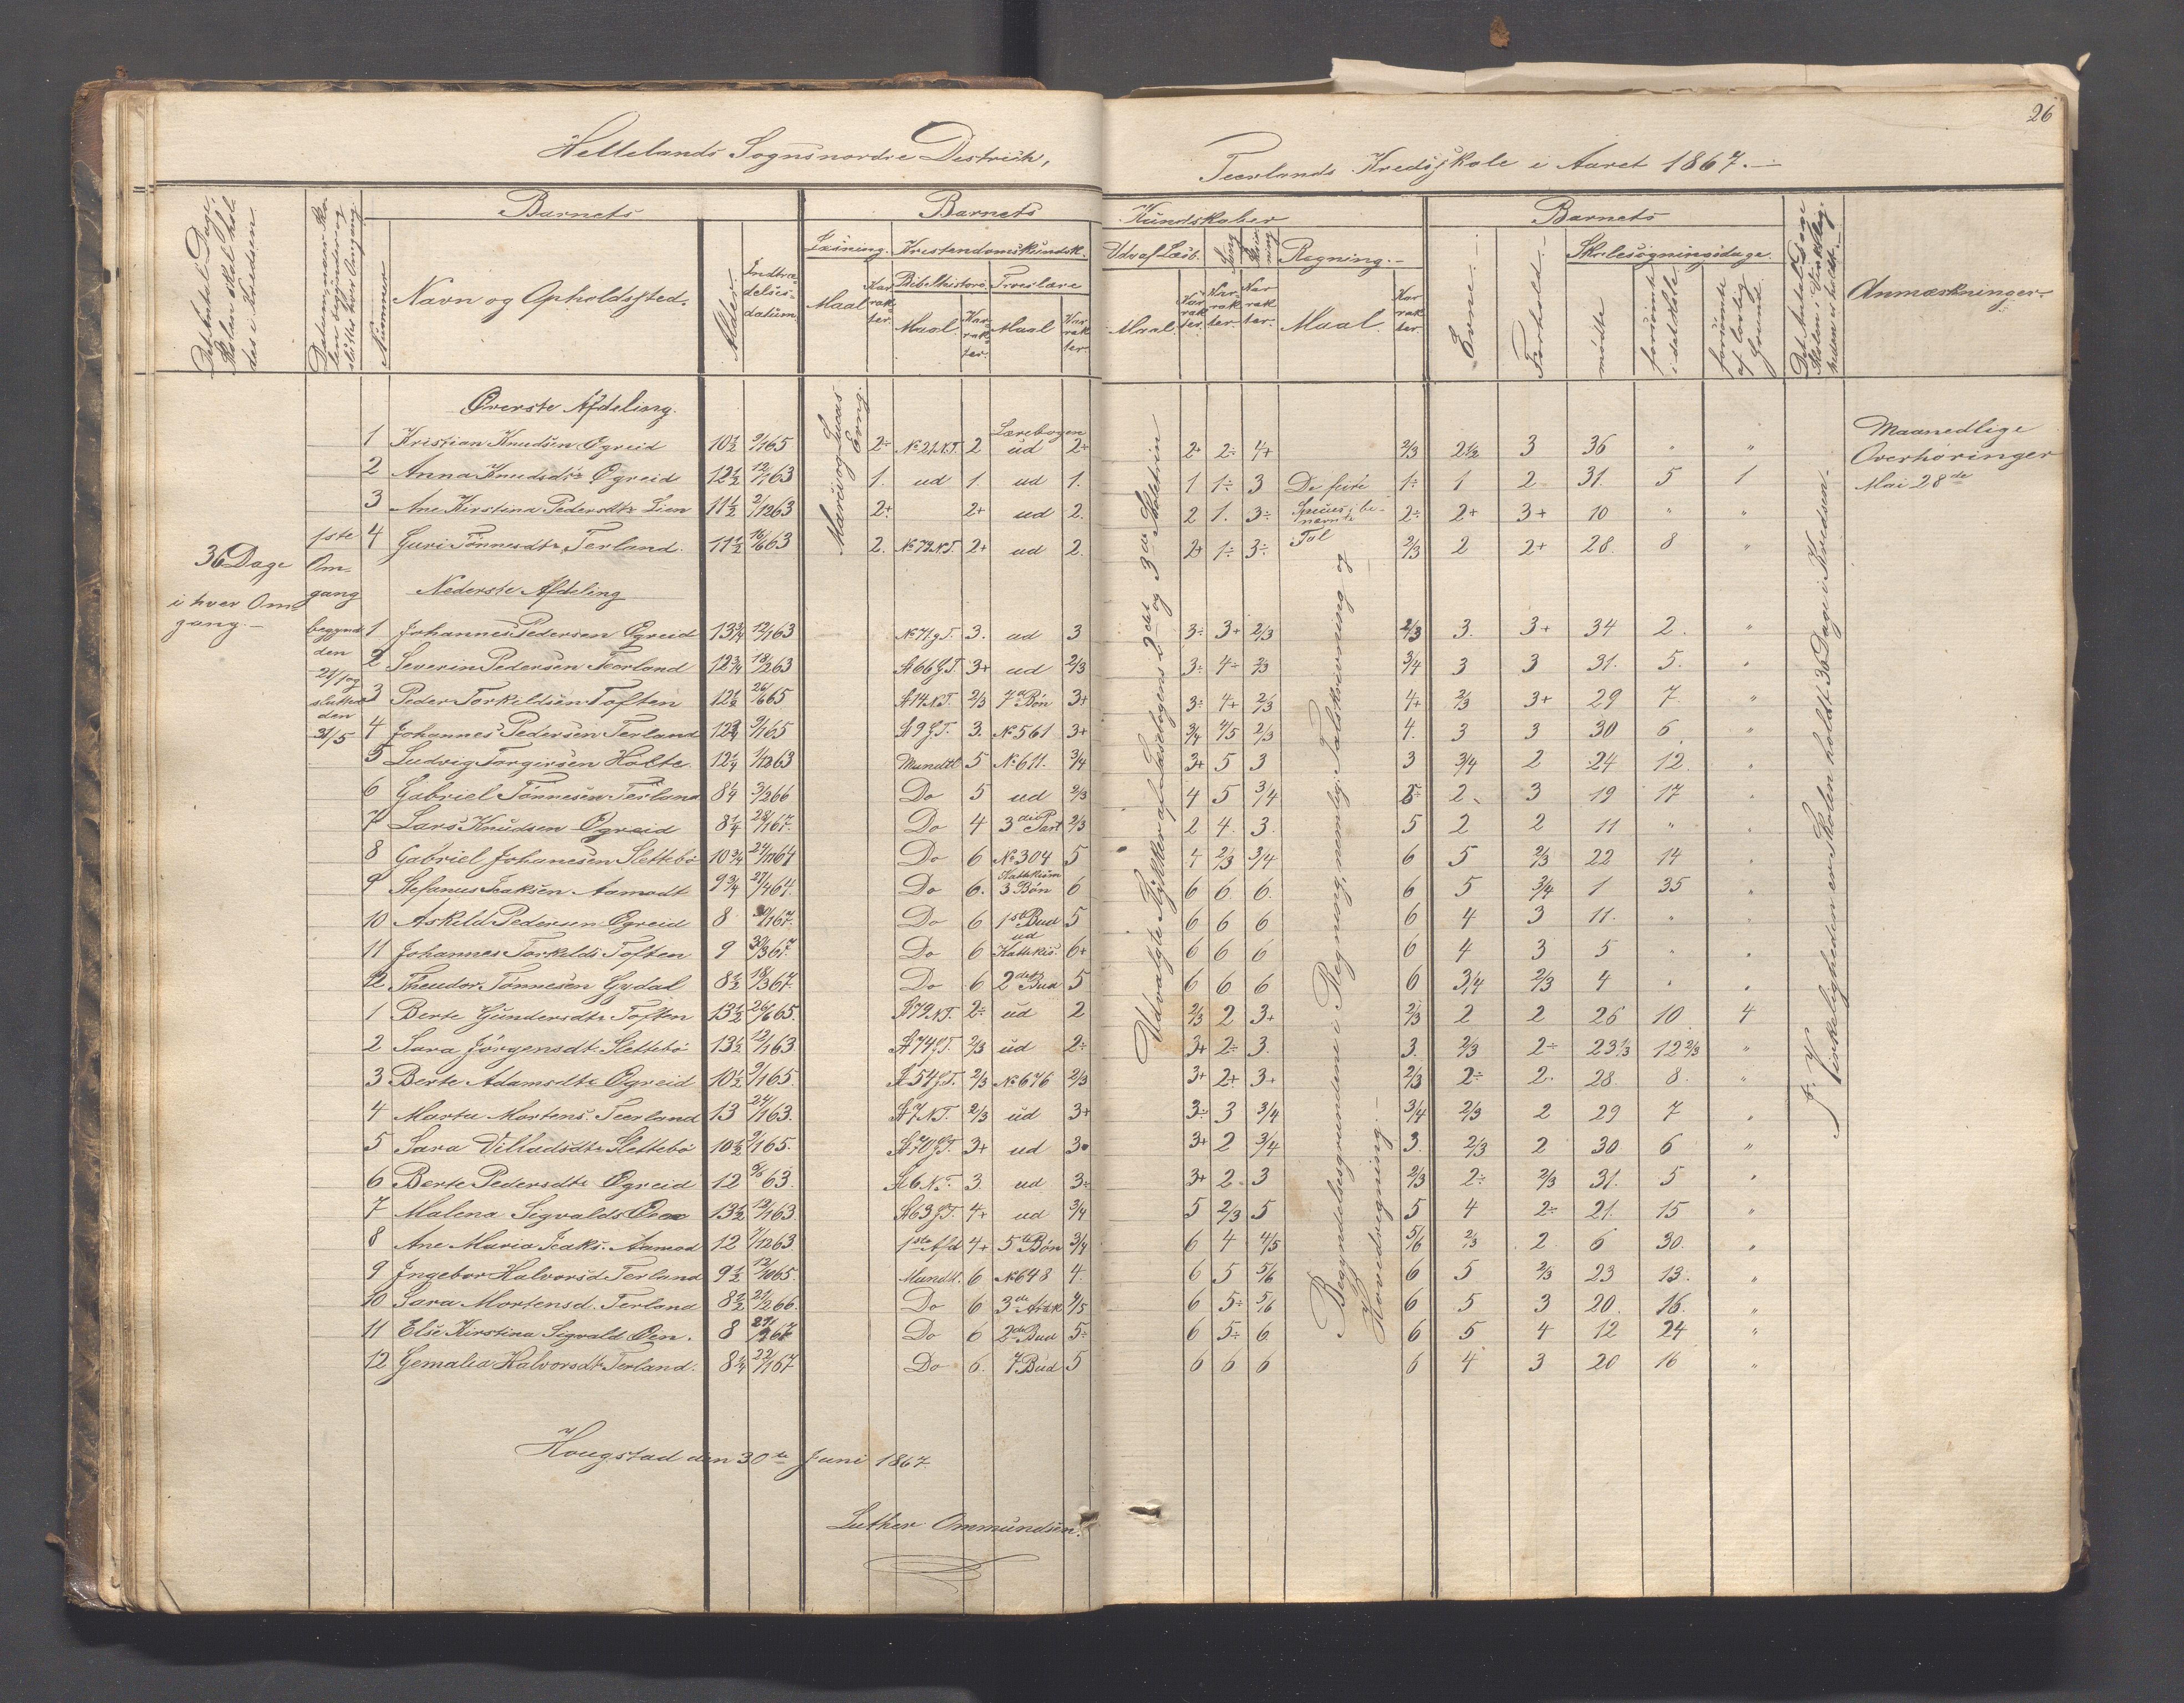 26
Hellelands Sogns nordre Destrickt,
Teerlands Kredsskole i Aaret 1867.
Barnets
Barnets
Kundskaber
Barnets
Det Antal Dage, Skolen skal holdes i Kredsen
Nummer
Navn og Opholdssted.
Alder
Indtrædelsesdatum
Læsning.
Kristendomskundsk.
Bibelhistorie
Troeslære
Maal
Karrakter
Maal
Karrakter
Maal
Karrakter
Udv af Læseb.
Sang
Skrivning
Regning.
Maal
Karrakter
Karrakter
Karrakter
Maal
Karrakter
Evne
Forhold
Skolesøgningsdage
mødte
forsømte i det Hele
forsømte af lovlig Grund
Anmærkninger
36 Dage
i hver Omgang.
1ste Omgang begyndt den 21/1 og sluttet den 31/5
Marcus og Lucas Evng.
Udvalgte Stykker af Læsebogens 2det og 3die Skoletrin
Begyndelsesgrundene i Regning, nemlig: Talskrivning og Hovedregning.
I Virkeligheden er Skolen holdt 36 Dage i Kredsen.
Maanedlige
Overhøringer
Mai 28de
Øverste Afdeling.
1 Kristian Knudsen Øgreid 10½ 9/1 65 2÷ No 21 N.T. 2 Lærebogen ud 2+ 2+ 2÷ 4+ 2/3 2½ 3 36 " "
2 Anna Knudsdtr Øgreid 12½ 12/1 63 1. ud 1. ud 1. 1 1÷ 3 De fire 1÷ 1 2 31. 5 1
3 Ane Kirstina Pedersdtr Lien 11½ 2/12 63 2+ 2+ ud 2. 2 1. 3÷ Species i benævnte 2÷ 2+ 3+ 10 " "
4 Guri Tønnesdtr Terland. 11½ 16/6 63 2. No 72 N.T. 2+ ud 2. 2+ 1÷ 3÷ Tal 2/3 2 2+ 28. 8 "
Nederste Afdeling
1 Johannes Pedersen Øgreid 13¾ 12/1 63 No 71 g T. 3. ud 3 3÷ 3+ 2/3 2/3 3. 3+ 34 2. "
2 Severin Pedersen Teerland 12¾ 18/2 63 No 66 G.T. 3+ ud 2/3 3÷ 4÷ 2/3 3/4 3 3 31. 5. "
3 Peder Torkildsen Toften 12½ 26/6 65 No 14 N.T. 2/3 7de Bøn 3+ 3÷ 4+ 2/3 4+ 2/3 3+ 29 7 "
4 Johannes Pedersen Terland 9/1 65 No 9 G.T. 3. No 561 3+ 3/4 4/5 2/3 4. 3 3 30 6. "
5 Ludvig Torgirsen Holte 12¼ 1/12 63 Mundtl 5 No 611. 3/4 3+ 5 3 3 3/4 2 24 12. "
6 Gabriel Tønnesen Terland 8¼ 3/2 66 Do 5 ud 2/3 4 5 3/4 2. 3 19 17 "
7 Lars Knudsen Øgreid 8¼ 28/1 67. Do 4 3die Part 2/3 2 4. 3. 5 2 2 11 " "
8 Gabriel Johanesen Slettebø 10¾ 21/11 64 Do 6 No 304 5 4 2/3 3/4 6 5 2/3 22 14 "
9 Stefanus Isaksen Aamodt 9¾ 27/4 64. Do 6. Kattekism 3 Bøn 6 6 6. 6. 6 5 3/4 1 35 "
10 Askild Pedersen Øgreid 8 67. Do 6 1ste Bud 5 6 6 6 6 4 3 11. " "
11 Johannes Torkilds Toften 9 30/3 67. Do 6 ud Kattekis. 6+ 6 6 6 6 4 3 5 " "
12 Theodor Tønnesen Gydal 8½ 18/3 67. Do 6 2det Bud 5 6 6 6 6 3/4 2/3 4 " "
1 Berte Gundersdtr Toften 13½ 26/6 65. No 72 N.T. 2÷ ud 2 2/3 2 3+ 2/3 2 2 26 10 4
2 Sara Jørgensdt. Slettebø 13½ 12/1 63 No 74 G.T. 2/3 ud 2÷ 3+ 2÷ 3. 3. 2/3 2÷ 23⅓ 12⅔ "
3 Berte Adamsdtr Øgreid 10½ 9/1 65. No 54 G.T. 2/3 No 676 2/3 3+ 2+ 3+ 2/3 2÷ 2. 28. 8. "
4 Marta Mortens. Teerland 13 24/1 63. No 7 N.T. 2/3 ud 3+ 3÷ 3 3/4 3/4 2/3 2 29 7 "
5 Sara Villadsdtr Slettebø 10½ 9/1 65. No 70 G.T. 3+ ud 3. 3+ 2 3/4 3. 2/3 2 30 6 "
6 Berte Pedersdtr Øgreid 12 63. No 6 N.T. 3. ud 3÷ 3+ 2. 3 2/3 2÷ 2/3 31. 5 "
7 Malena Sigvalds Øen 13½ 12/1 63 No 63 G.T. 4+ ud 3/4 5 2/3 5 5 4 2÷ 21. 15 "
8 Ane Maria Isaks. Aamod 12 1/12 63 1ste Afd 4+ 5te Bøn 3/4 6 4 4/5 5/6 2/3 2 6 30. "
9 Ingebor Halvorsd. Terland 9½ 12/10 65. Mundtl. 6 No 648 4. 6 5 5/6 6 5 2/3 23 13. "
10 Sara Mortensd. Terland 8½ 21/2 66. Do 6 3de Artik 4/5 6 5÷ 5/6 6 5 3 20. 16. "
11 Else Kirstina Sigvald Øen. 8 Do 6 2det Bud 5÷ 6 5÷ 6. 6 5 4 12 24 "
12 Gemalia Halvorsdt. Terland. 8¼ 22/1 67 Do 6. 7 Bud 5 6 6 6 6 4 3 20 16 "
Hougstad den 30te Juni 1867.
Luther Ommundsen.